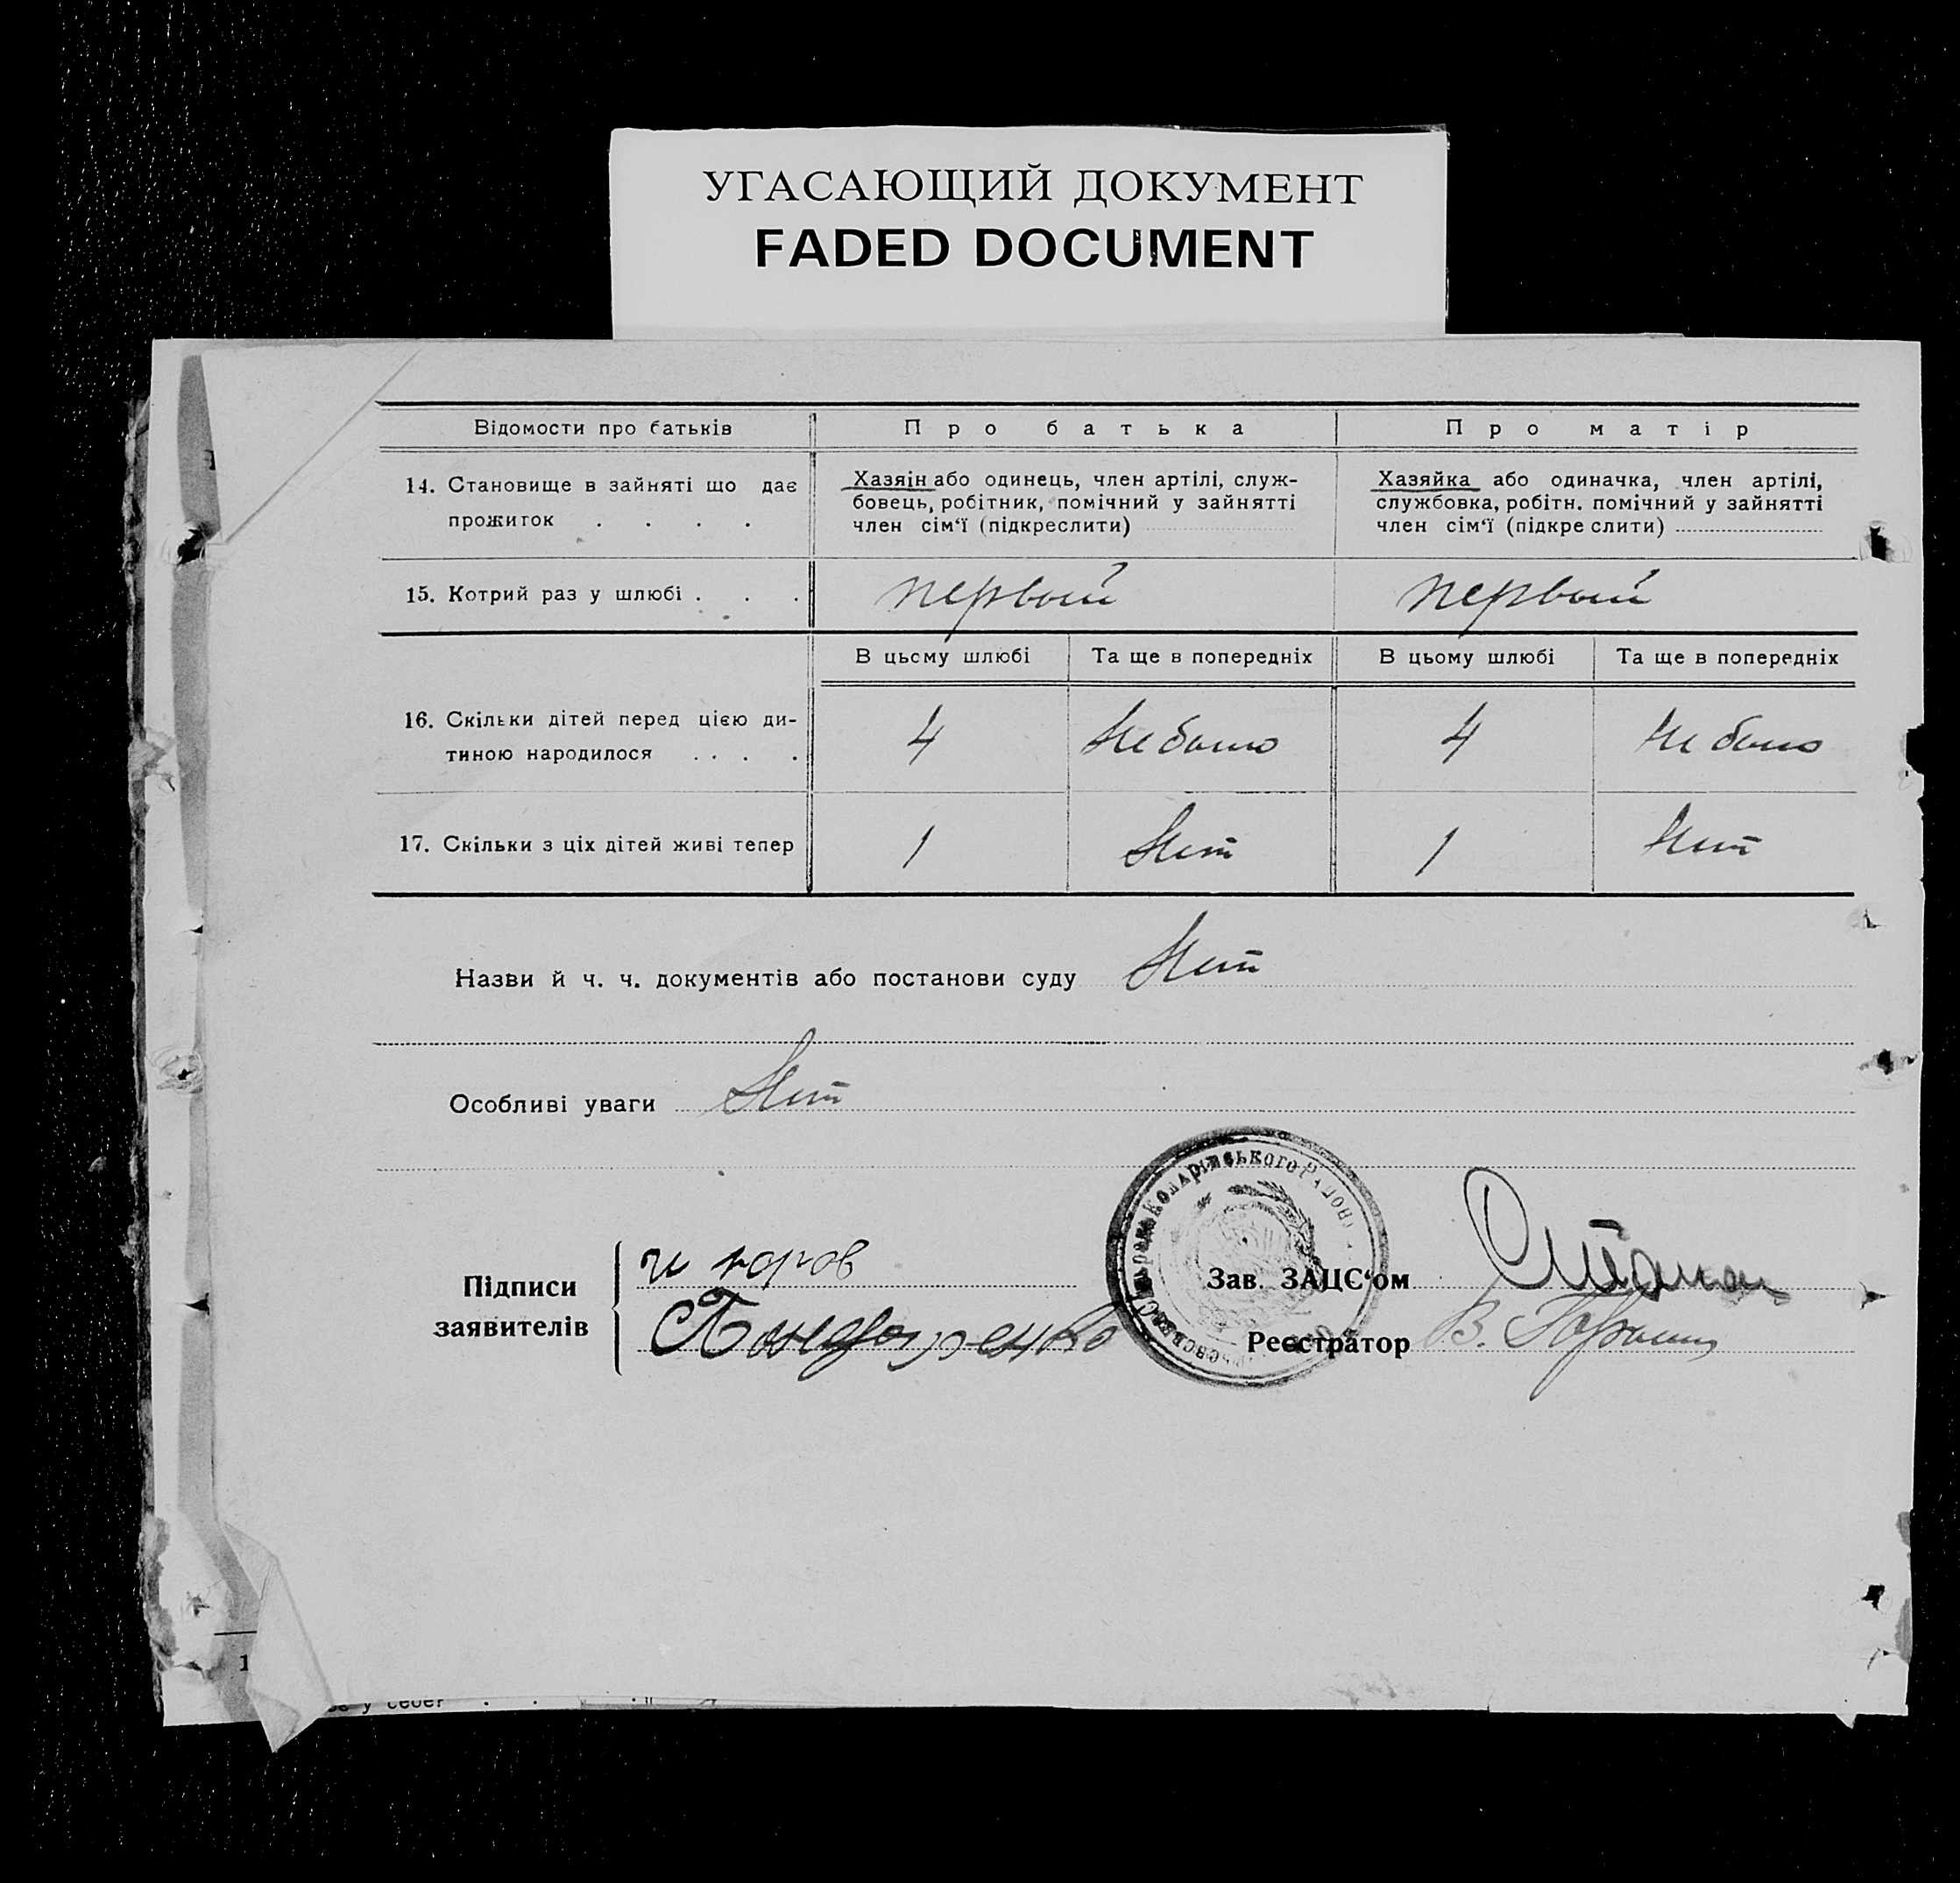 УГАСАЮЩИЙ ДОКУМЕНТ
FADED DOCUMENT
Відомости про батьків
Про батька
Про матір
14. Становище в зайняті що дає
прожиток . . . .
Хазяїн або одинець, член артілі, служ-
бовець, робітник, помічний у зайнятті
член сім‘ї (підкреслити)
Хазяйка або одиначка, член артілі,
службовка, робітн. помічний у зайнятті
член сім‘ї (підкре слити)
15. Котрий раз у шлюбі . . .
первый
первый
В цьому шлюбі
Та ще в попередніх
В цьому шлюбі
Та ще в попередніх
16. Скільки дітей перед цією ди-
тиною народилося . . . .
4
Не было
4
Не было
17. Скільки з ціх дітей живі тепер
1
Нет
1
Нет
Назви й ч. ч. документів або постанови суду Нет
Особливі уваги Нет
Підписи
заявителів
Зав. ЗАЦС‘ом
Реєстратор В.
1
у себе